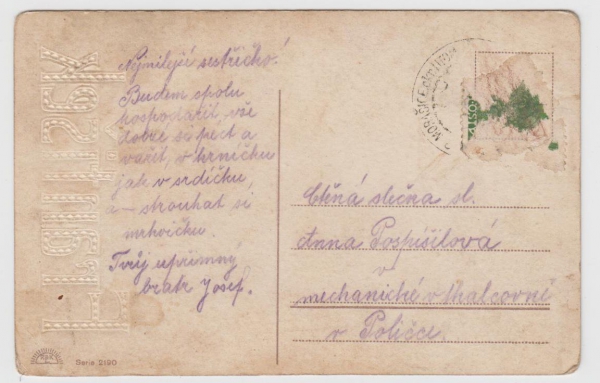 Nejmilejší sestřičko!
Budem spolu
hospodařit, vše
dobře si péct a
vařit, v hrníčku
jak v srdíčku,
a strouhat si
mrkvičku.
Tvůj upřímný
bratr Josef.
Ctěná slečna sl.
Anna Pospíšilová
v
mechanické tkalcovně
v Poličce.
Serie 2120